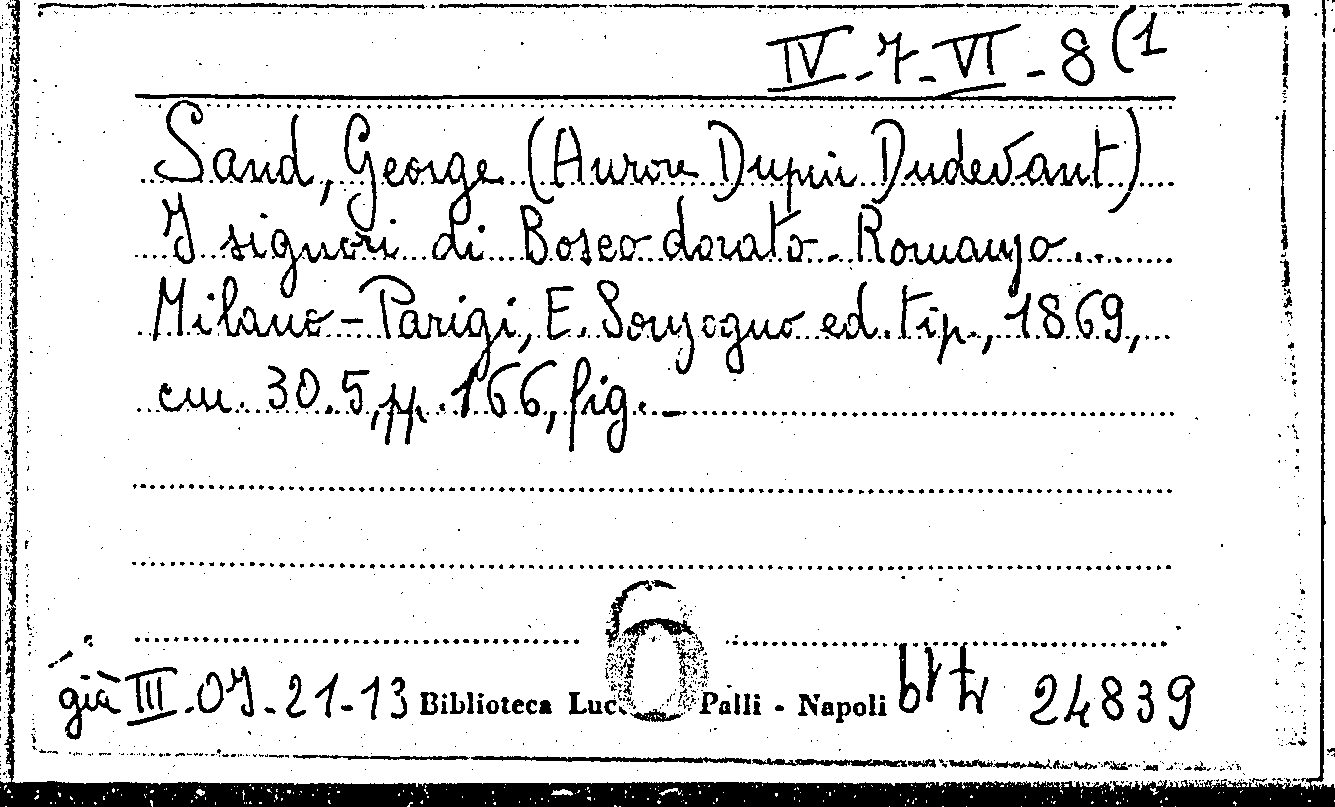 IV-7-VI-8(1
Sand, George (Aurore Dupin Dudevant)
I signori di Bosco dorato. Romanzo...
Milano-Parigi, E. Sonzogno ed. tip., 1869,
cm. 30.5, pp. 166, fig.-
già III.OJ-21-13 Biblioteca Luc Palli - Napoli 24839